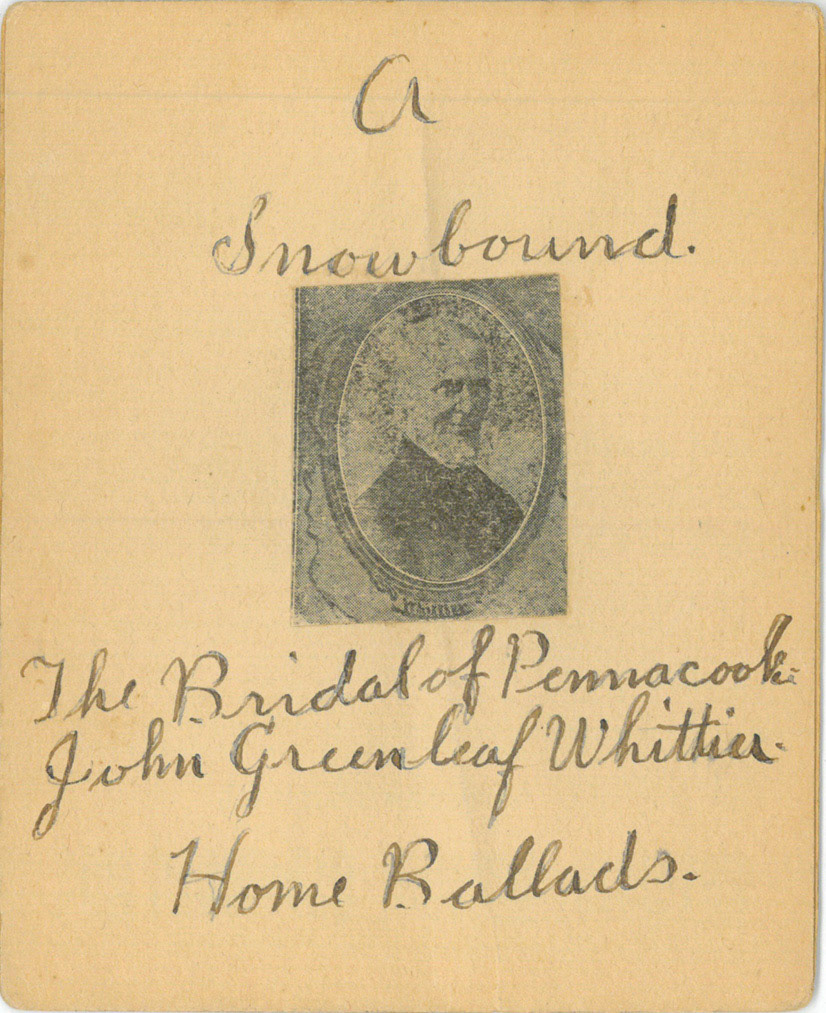 A
Snowbound.
Whittier
The Bridal of Pennacook.
John Greenleaf Whittier.
Home Ballads.